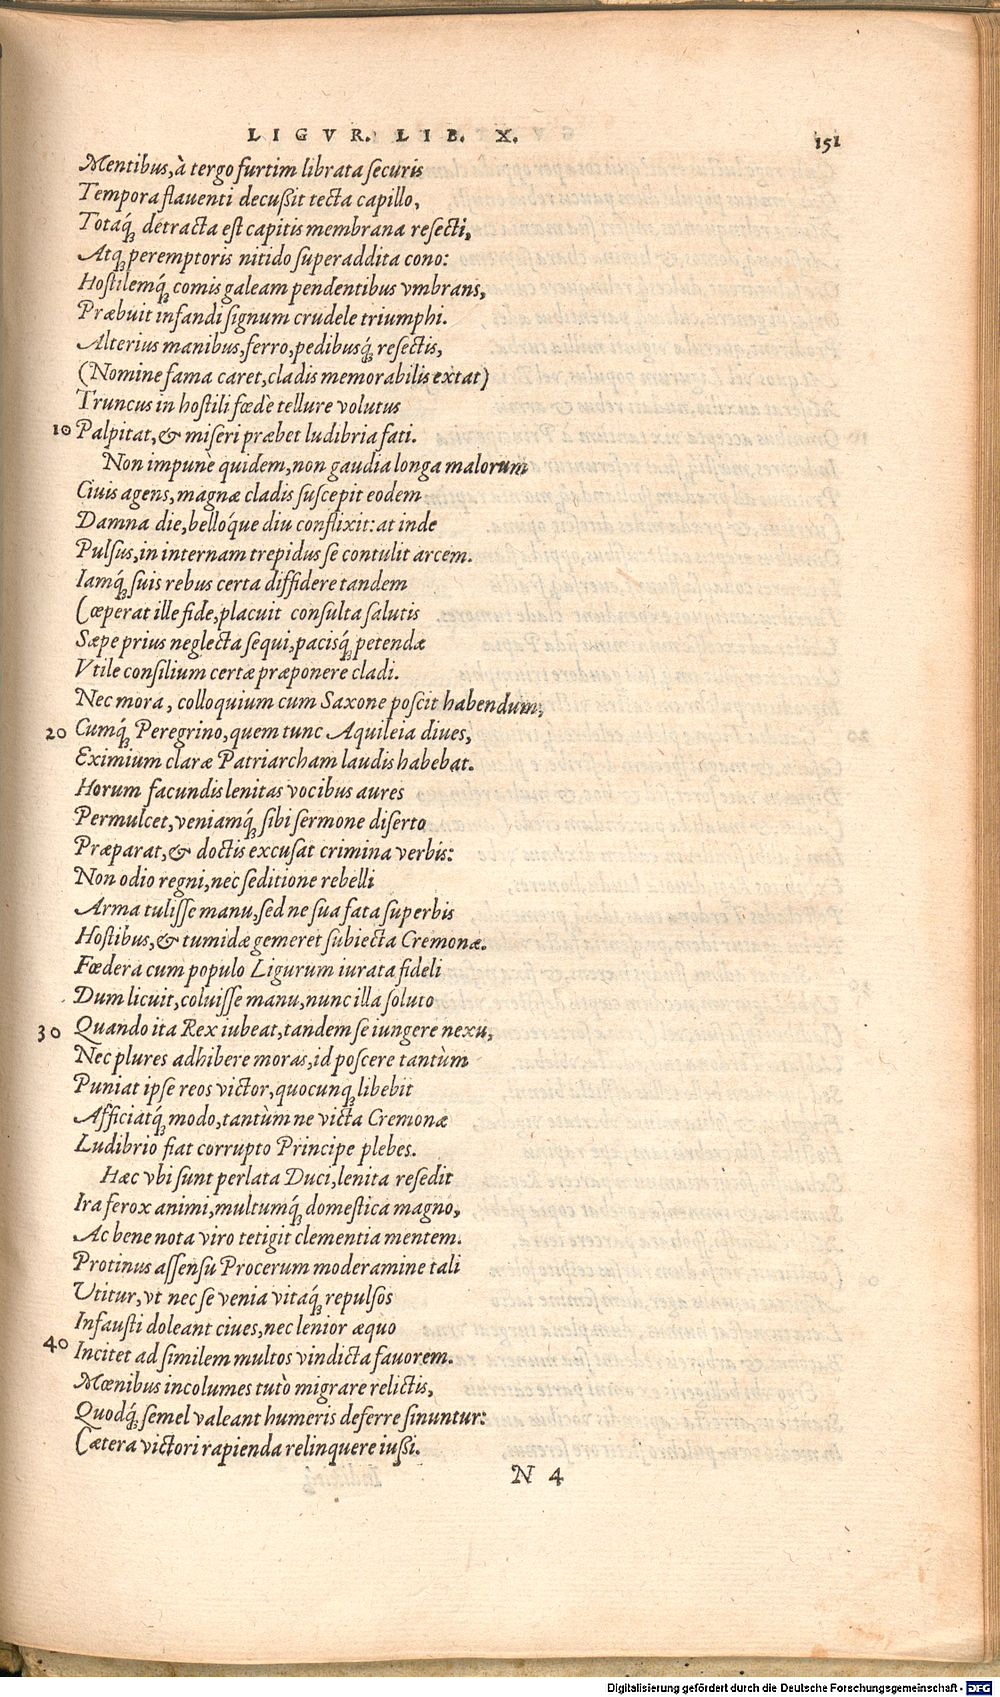 LIGVR. LIB. X. 151
Mentibus, à tergo furtim librata securis
Tempora flauenti decußit tecta capillo,
Totaq́; detracta est capitis membrana resecti,
Atq; peremptoris nitido superaddita cono:
Hostilemq́; comis galeam pendentibus vmbrans,
Præbuit infandi signum crudele triumphi.
Alterius manibus, ferro, pedibusq́; resectis,
(Nomine fama caret, cladis memorabilis extat)
Truncus in hostili fœdè tellure volutus
10 Palpitat, & miseri præbet ludibria fati.
Non impune quidem, non gaudia longa malorum
Ciuis agens, magnæ cladis suscepit eodem
Damna die, belloq́ue diu conflixit: at inde
Pulsus, in internam trepidus se contulit arcem.
Iamq́; suis rebus certa diffidere tandem
Cœperat ille fide, placuit consulta salutis
Sæpe prius neglecta sequi, pacisq́; petendæ
Vtile consilium certæ præponere cladi.
Nec mora, colloquium cum Saxone poscit habendum,
20 Cumq́; Peregrino, quem tunc Aquileia diues,
Eximium claræ Patriarcham laudis habebat.
Horum facundis lenitas vocibus aures
Permulcet, veniamq́; sibi sermone diserto
Præparat, & doctis excusat crimina verbis:
Non odio regni, nec seditione rebelli
Arma tulisse manu, sed ne sua fata superbis
Hostibus, & tumidæ gemeret subiecta Cremonæ.
Fœdera cum populo Ligurum iurata fideli
Dum licuit, coluisse manu, nunc illa soluto
30 Quando ita Rex iubeat, tandem se iungere nexu,
Nec plures adhibere moras, id poscere tantùm
Puniat ipse reos victor, quocunq; libebit
Afficiatq́; modo, tantùm ne victa Cremonæ
Ludibrio fiat corrupto Principe plebes.
Hæc vbi sunt perlata Duci, lenita resedit
Ira ferox animi, multumq́; domestica magno,
Ac bene nota viro tetigit clementia mentem.
Protinus assensu Procerum moderamine tali
Utitur, vt nec se venia vitaq́; repulsos
Infausti doleant ciues, nec lenior æquo
40 Incitet ad similem multos vindicta fauorem.
Mœnibus incolumes tutò migrare relictis,
Quodq́; semel valeant humeris deferre sinuntur:
Cætera victori rapienda relinquere iußi.
N 4
Digitalisierung gefördert durch die Deutsche Forschungsgemeinschaft - DFG